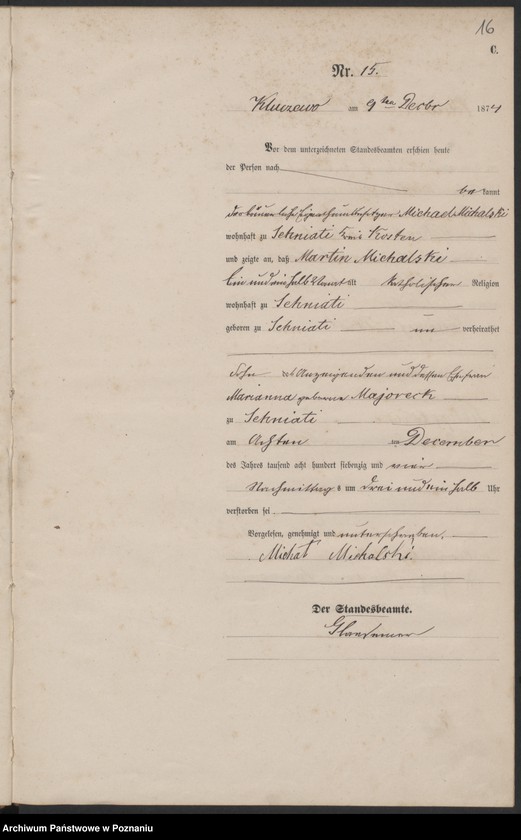 16
C.
Nr. 15.
Kluczewo am 9ten Decbr 1874
Vor dem unterzeichneten Standesbeamten erschien heute
der Person nach
be kannt
der bäuerliche Eigenthumbesitzer Michael Michalski
wohnhaft zu Sehniati Kreis Kosten
und zeigte an, daß Martin Michalski
Ein und ein halb Monat alt katholischer Religion
wohnhaft zu Sehniati
geboren zu Sehniati un verheirathet
Sohn des Anzeigenden und dessen Ehefrau
Marianna geborene Majoreck
zu Sehniati
am Achten December
des Jahres tausend acht hundert siebenzig und vier
Nachmittags um drei und ein halb Uhr
verstorben sei
Vorgelesen, genehmigt und unterschrieben.
Michał Michalski.
Der Standesbeamte.
Archiwum Państwowe w Poznaniu